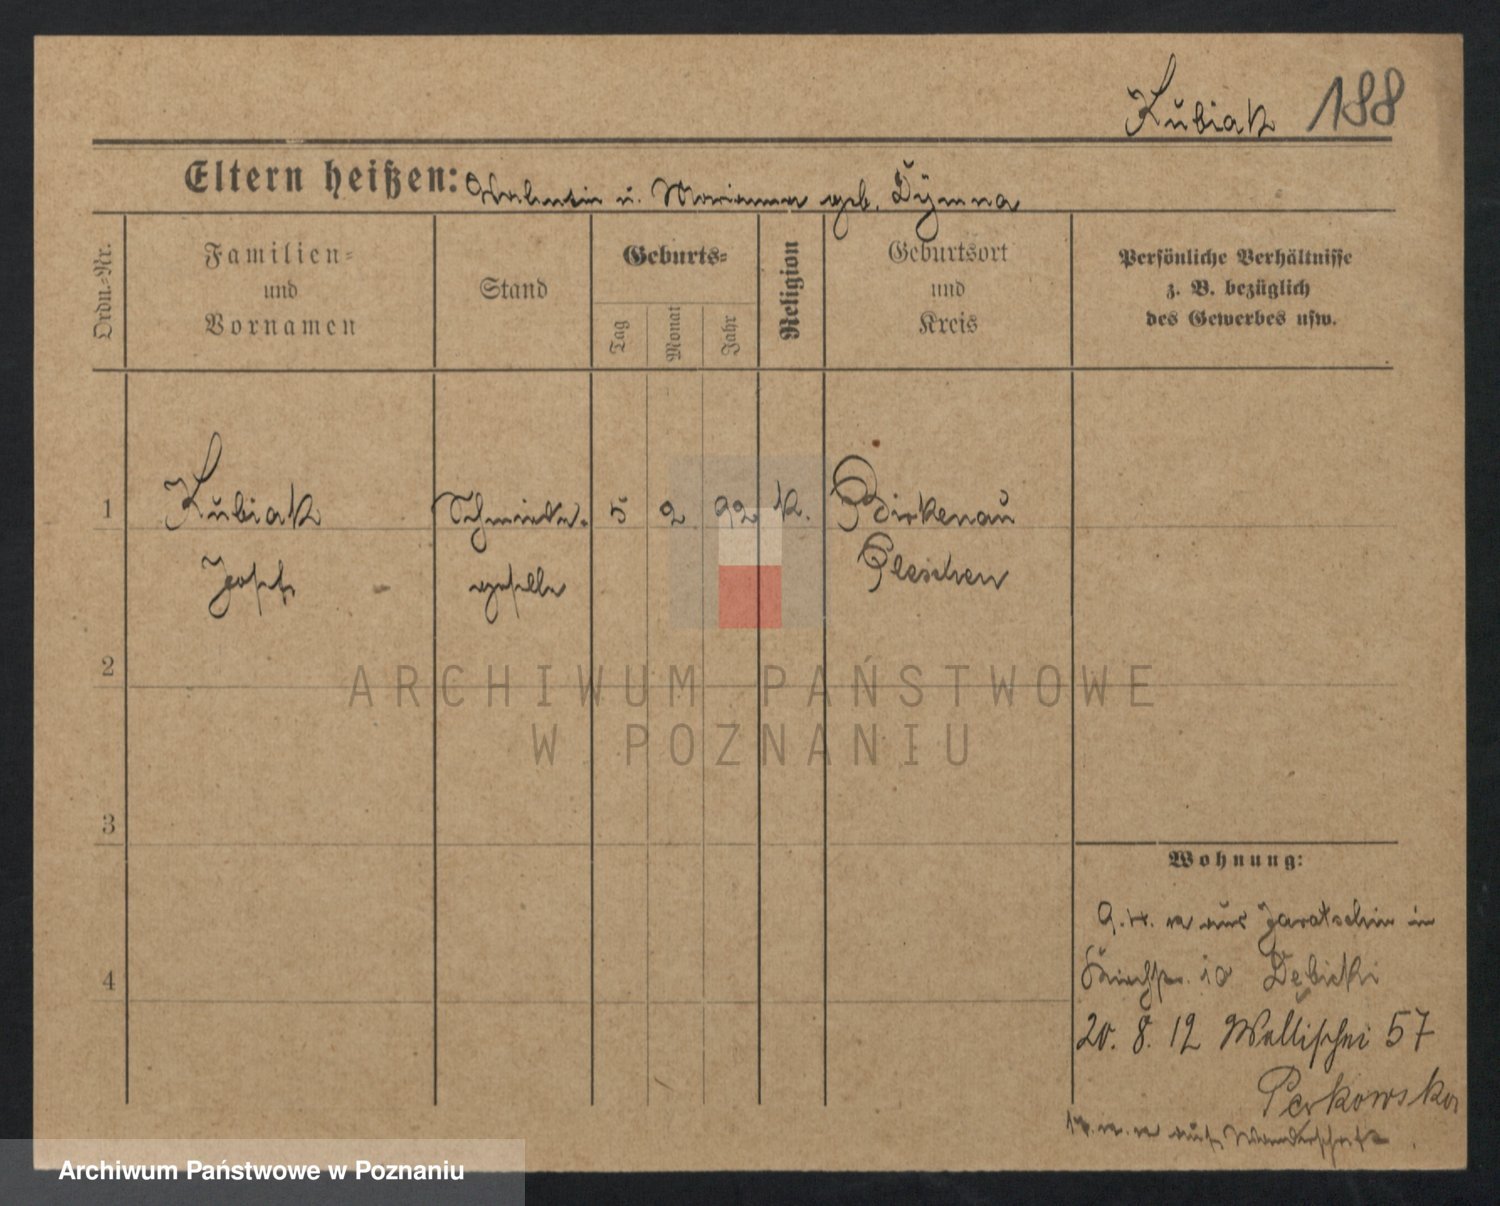 Kubiak 188
Eltern heißen: Valentin u. Marianna geb. Dymna
Ordn.-Nr.
Familien-
und
Vornamen
Stand
Geburts-
Tag
Monat
Jahr
Religion
Geburtsort
und
Kreis
Persönliche Verhältnisse
z. B. bezüglich
des Gewerbes usw.
1 Kubiak Schmiede- 5 2 92 k. Birkenau
Joseph geselle Pleschen
2
3
4
Wohnung:
aus Jarotschin in
10 Dębicki
20. 8. 12 Wallischei 57
Perkowska
auf Wanderschaft
ARCHIWUM PAŃSTWOWE
W POZNANIU
Archiwum Państwowe w Poznaniu